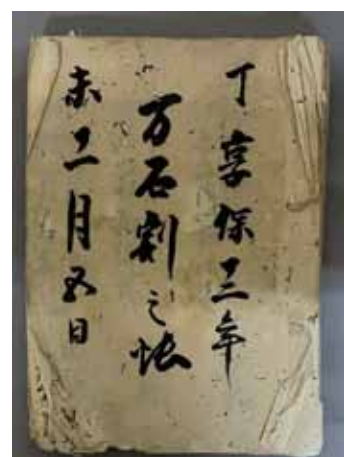 丁享保十二年
万石割之帳
未二月五日